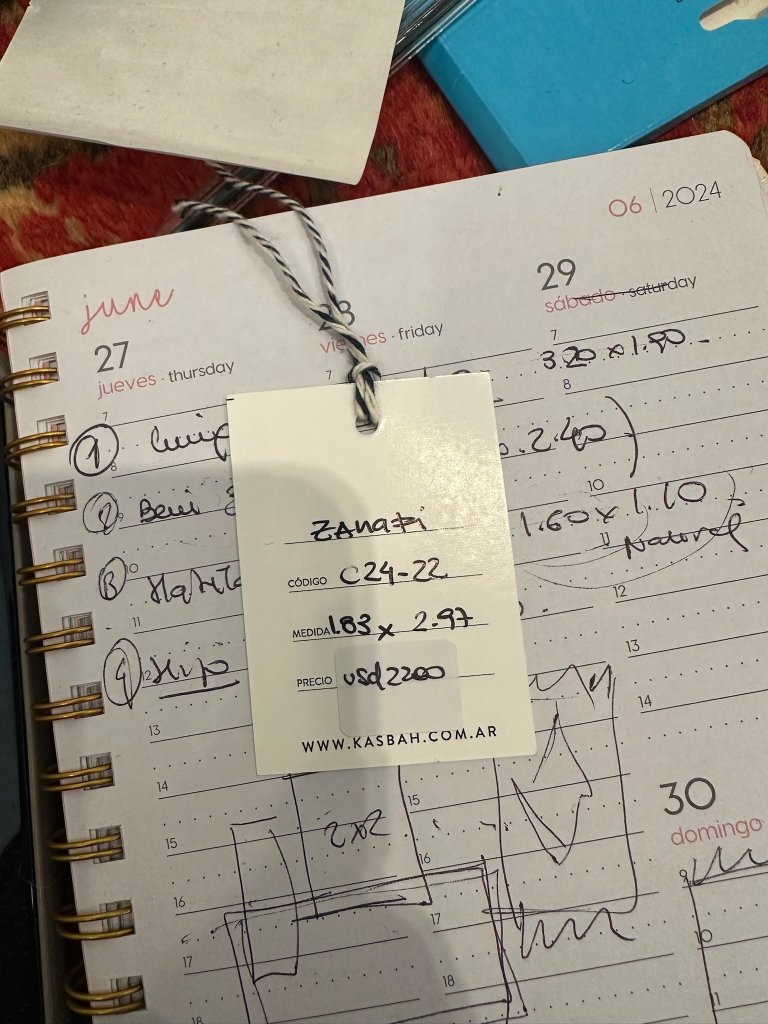 06 | 2024
june
27
jueves · thursday
28
viernes · friday
29
sábado · saturday
7
3.20 x 1.90
8
1.
2.40)
2 Beni
10
1.60 x 1.10
11
Natural
3
11
12
4
12 Hipo
13
13
14
14
15
15
2x2
16
16
17
17
18
18
30
domingo
9
10
11
ZANAFI
CÓDIGO C24-22
MEDIDA 1.83 x 2.97
PRECIO usd 2200
WWW.KASBAH.COM.AR